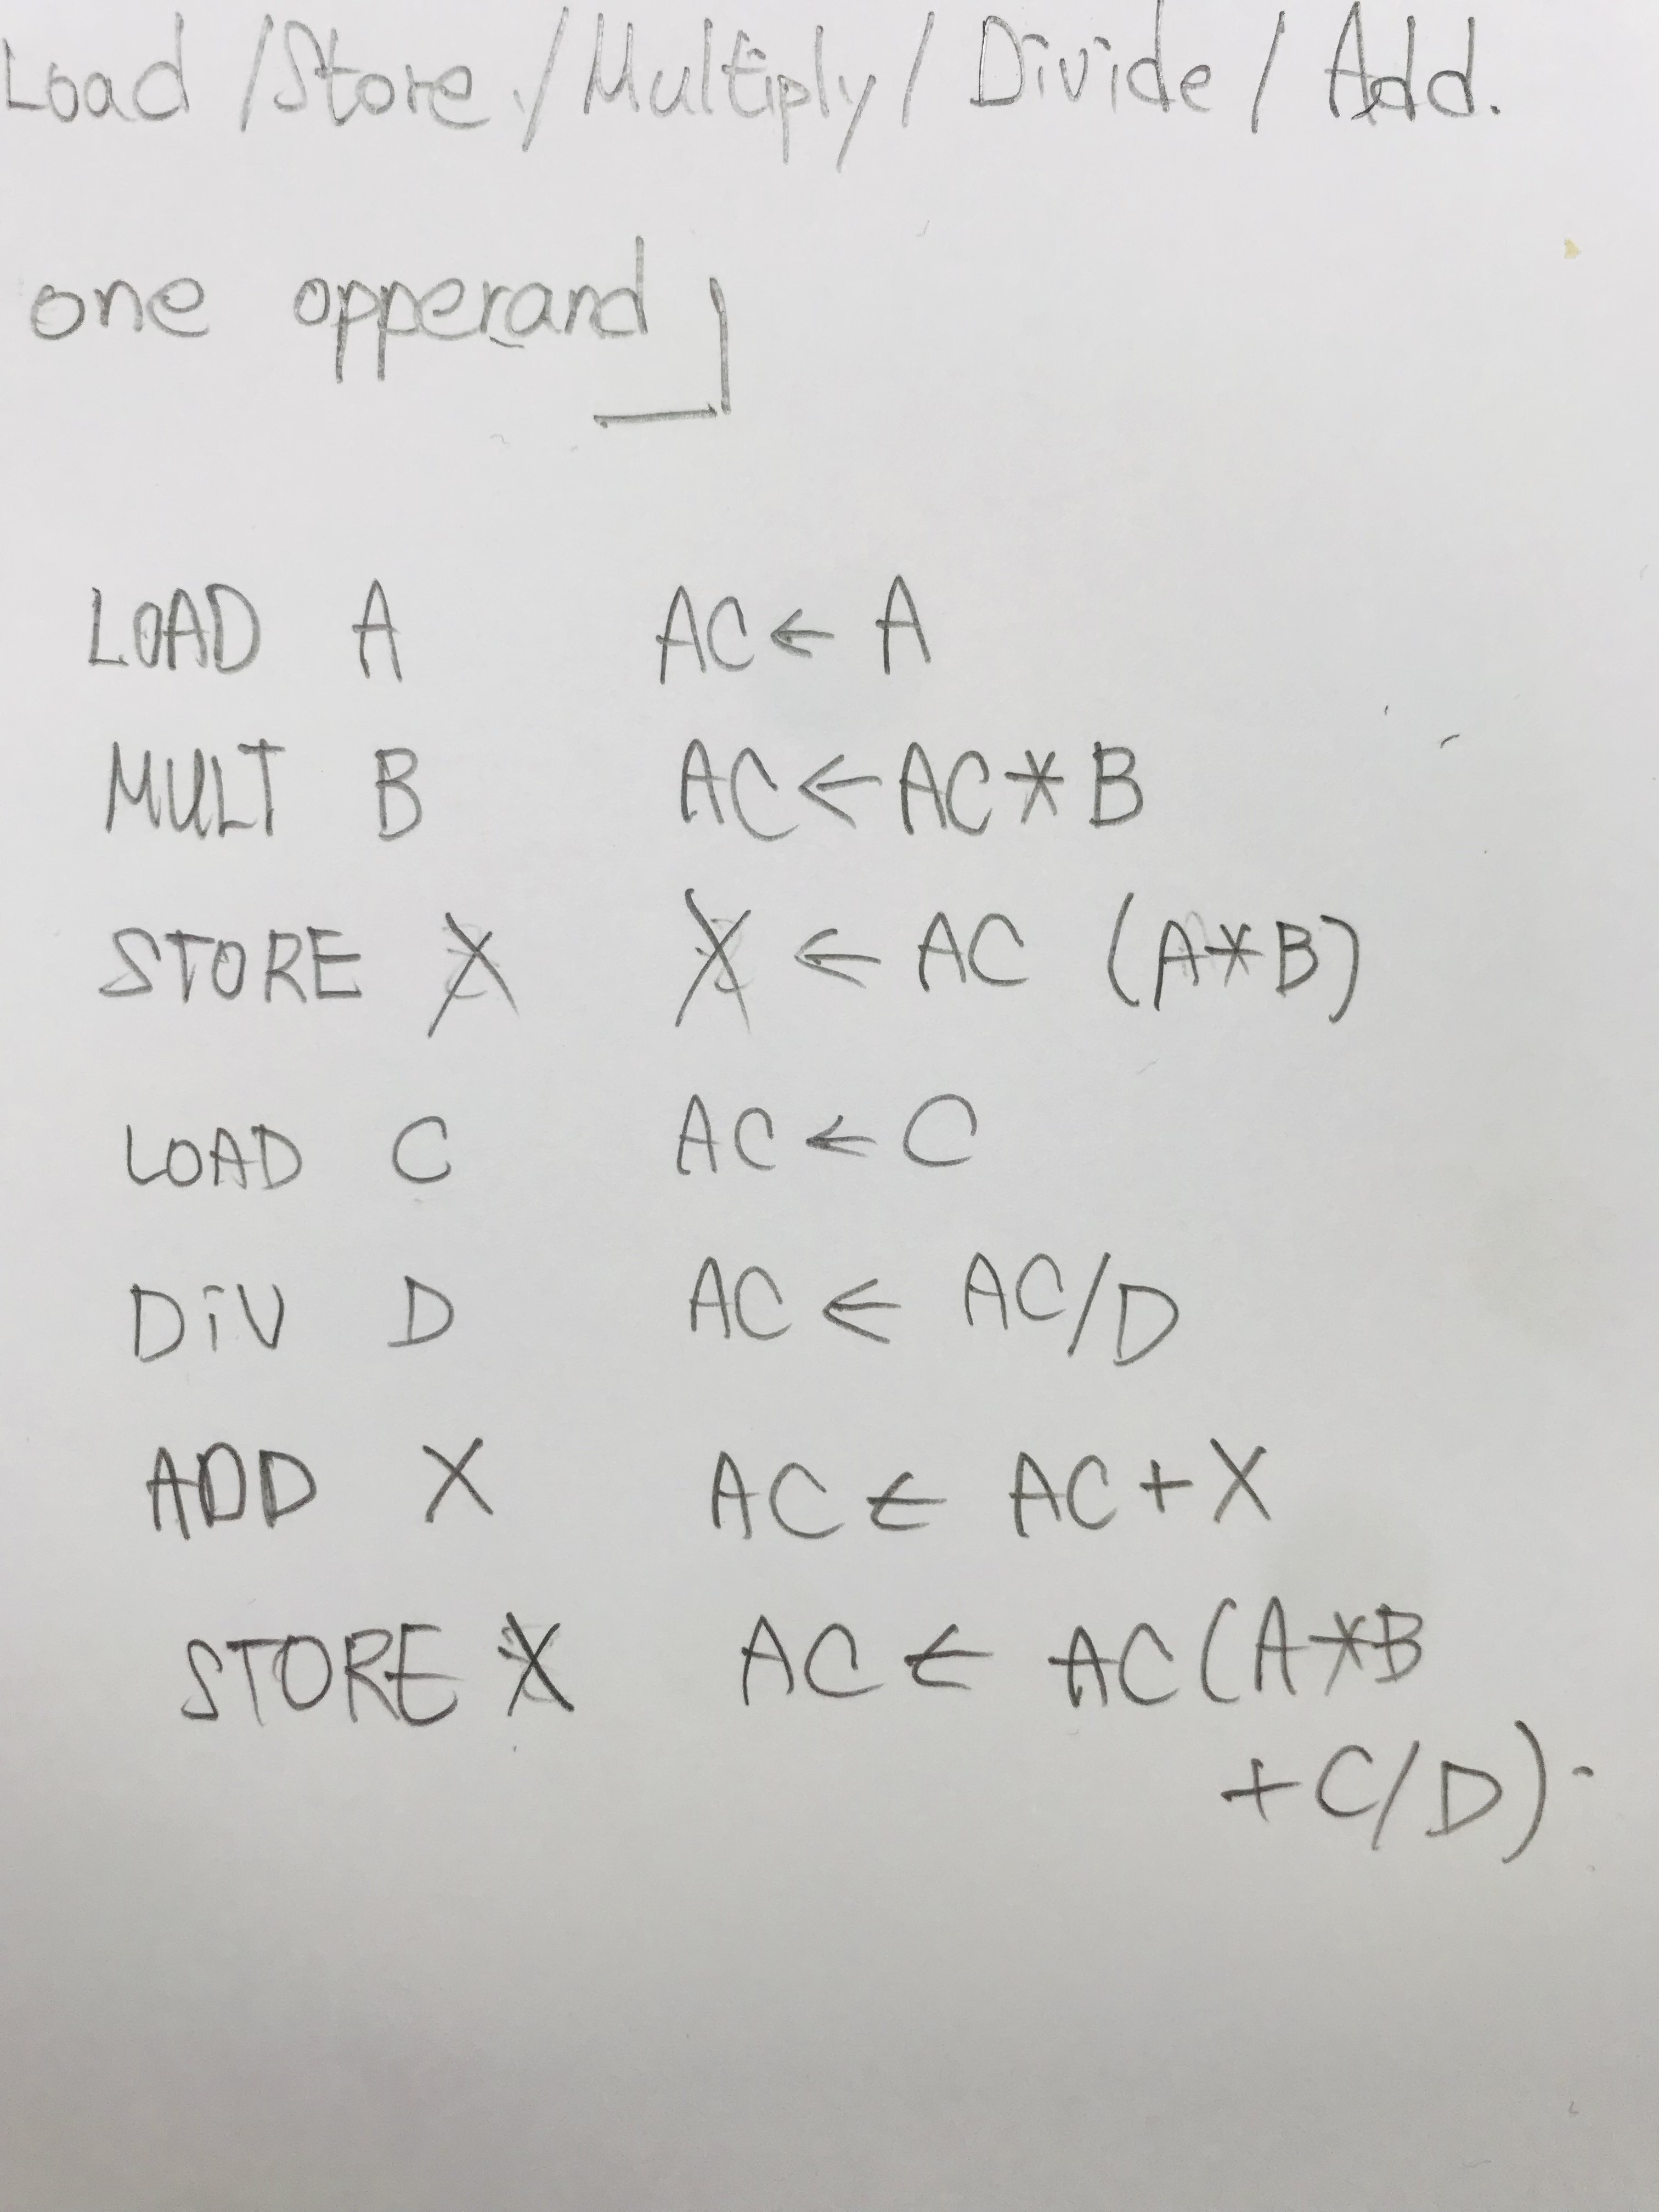 Load /Store / Multiply / Divide / Add.
one opperand
LOAD A AC ← A
MULT B AC ← AC * B
STORE X X ← AC (A*B)
LOAD C AC ← C
DiV D AC ← AC/D
ADD X AC ← AC + X
STORE X AC ← AC (A*B
+ C/D)